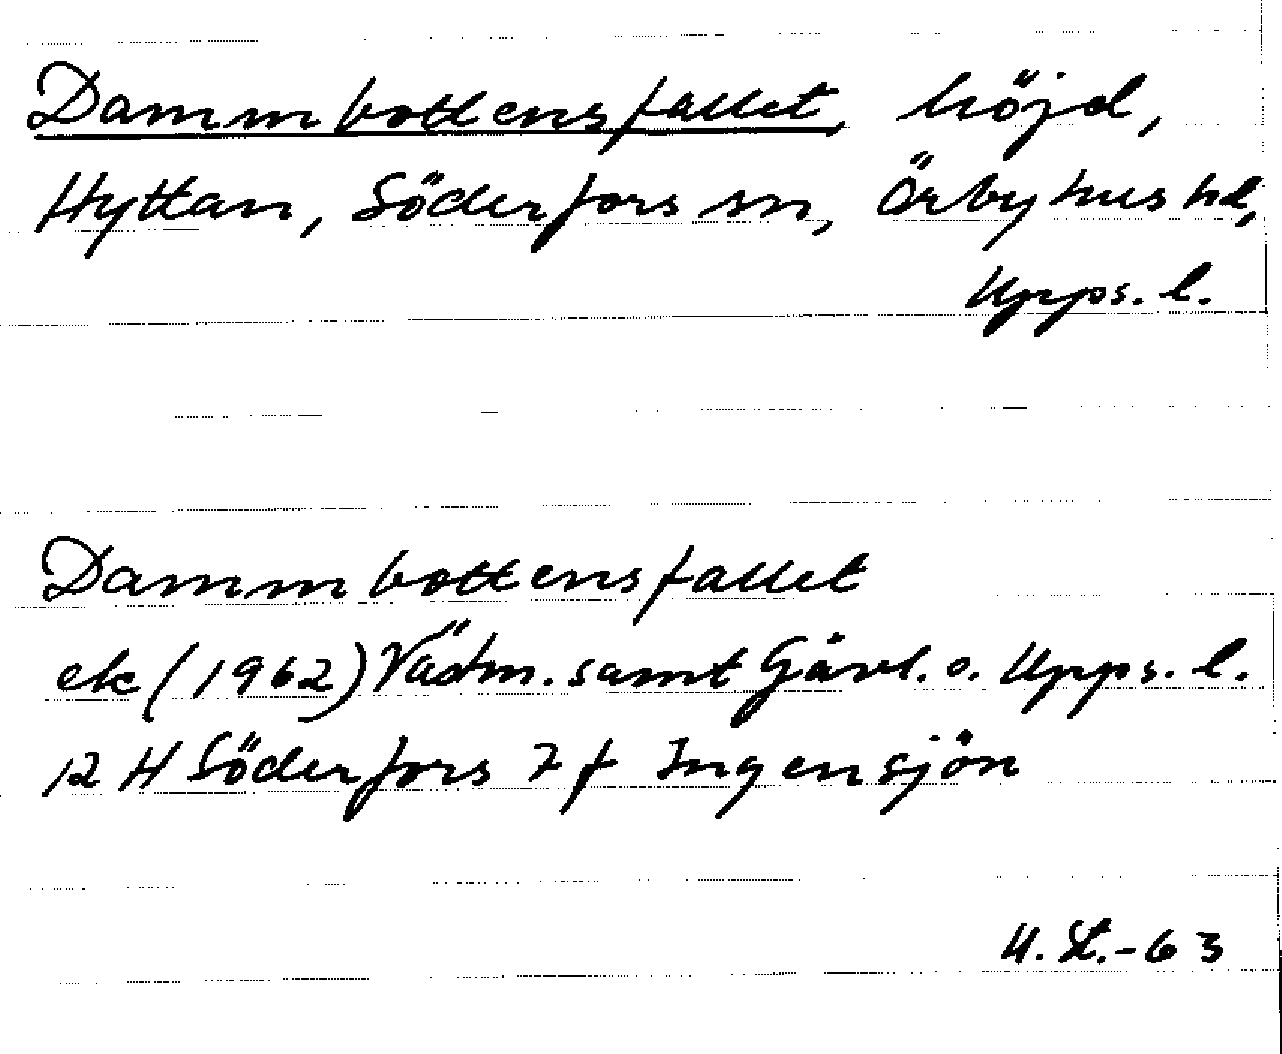 Dammbottensfallet, höjd,
Hyttan, Söderfors sn, Örbyhus hd,
Upps. l.
Dammbottensfallet
ek (1962) Västm. samt Gävl. o. Upps. l.
12 H Söderfors 7 f Ingensjön
U. L.-63